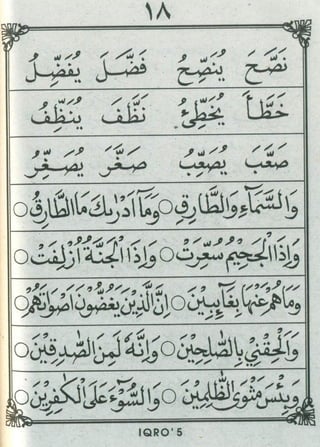 ١٨
نَصَّحَ يُنَصِّحُ فَضَّلَ يُفَضِّلُ
خَطَّأَ يُخَطِّئُ نَظَّفَ يُنَظِّفُ
صَعَّبَ يُصَعِّبُ صَغَّرَ يُصَغِّرُ
وَالسَّمَاۤءِ وَالطَّارِقِ ○ وَمَاۤ اَدْرٰىكَ مَا الطَّارِقُ ○
وَاِذَا الْجَحِيْمُ سُعِّرَتْ ○ وَاِذَا الْجَنَّةُ اُزْلِفَتْ ○
وَمَاهُمْ عَنْهَا بِغَاۤىِٕبِيْنَ ○ اِنَّ الَّذِيْنَ يَغُضُّوْنَ اَصْوَاتَهُمْ ○
وَاَلْحِقْنِيْ بِالصّٰلِحِيْنَ ○ وَاِنَّهٗ لَمِنَ الصّٰدِقِيْنَ ○
وَبِئْسَ مَثْوَى الظّٰلِمِيْنَ ○ وَالسُّوْۤءَ عَلَى الْكٰفِرِيْنَ ○
IQRO'5